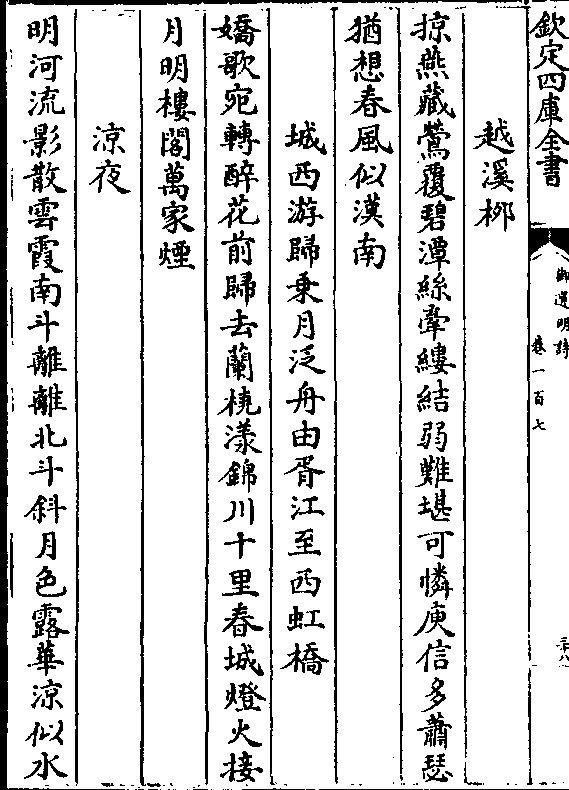 欽定四庫全書
御選明詩
卷一百七
二十八
越溪栁
掠燕藏鶯覆碧潭絲牽縷結弱難堪可憐庾信多蕭瑟
猶想春風似漢南
城西游歸乗月泛舟由胥江至西虹橋
嬌歌宛轉醉花前歸去蘭橈漾錦川十里春城燈火接
月明樓閣萬家煙
涼夜
明河流影散雲霞南斗離離北斗斜月色露華涼似水